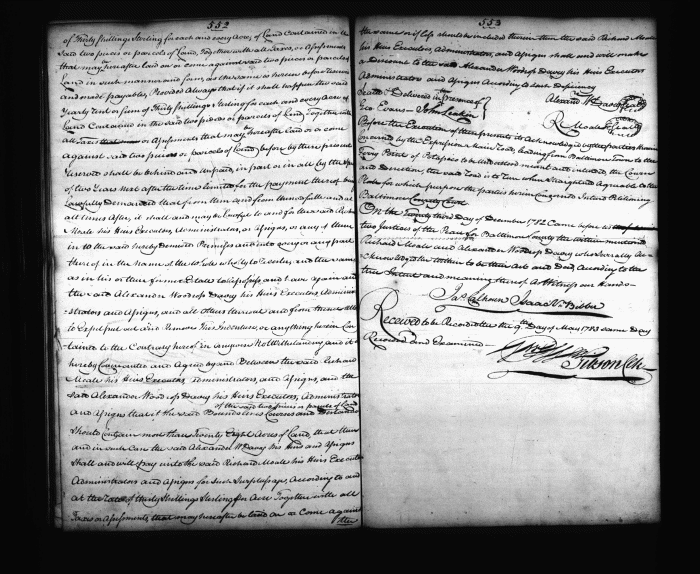 552
of Thirty Shillings Sterling for each and every Acre of Land Contained in the
said two pieces or parcels of Land, Together with all Taxes, or Assessments
that may hereafter laid on or come against said two pieces or parcels of
Land in such manner and form, as the same is herein before reserved
and made payable, Provided Always that if it shall happen the said
Yearly rent or sum of Thirty Shillings Sterling for each and every Acre of
Land Contained in the said two pieces or parcels of Land, Together with
all Taxes or Assessments that may hereafter laid on or come
against said two pieces or parcels of Land, before by these presents
reserved shall be behind and unpaid, in part or in all by the space
of two Years next after the time limited for the payment thereof being
Lawfully demanded that from then and from thenceforth and at
all times After, it shall and may be Lawful to and for the said Richard
Moale his Heirs Executors, Administrators, or Assigns, or any of them
in to the said hereby demised Premises and into every or any part
thereof in the Name of the whole wholy to reenter, and the same
as in his or their former Estate to repossess and have again and
the said Alexander Woodrop Davey his Heirs Executors, Adminis-
-trators and Assigns, and all others thereout and from thence utterly
to Expel put out and remove this Indenture, or anything herein Con-
tained to the Contrary hereof in anywise Notwithstanding and it is
hereby Covenanted and Agreed by and Between the said Richard
Moale his Heirs Executors, Administrators, and Assigns, and the
said Alexander Woodrop Davey his Heirs Executors, Administrators
of the said two pieces or parcels of Land
and Assigns that if the said Bounds lines Courses and Distances
Should Contain more than Twenty Eight Acres of Land, that then
and in such Case the said Alexander W Davey his Heirs and Assigns
Shall and will pay unto the said Richard Moale his Heirs Executors
Administrators and Assigns for such Surplusage, According to and
at the rate of thirty Shillings Sterling for Acre Together with all
Taxes or Assessments, that may hereafter be laid on or Come against
the
553
the same or if less should be included therein then the said Richard Moale
his Heirs Executors, Administrators, and Assigns shall and will make
a discount to the said Alexander Woodrop Davey his Heirs Executors
Administrators and Assigns According to such deficiency
Sealed & Delivered in the Presence of
Geo. Evans John Leakin
Alexand W Davey Seal
R Moale Seal
Before the Execution of these presents its Acknowledged by the parties
by the Expression main Road, leading from Baltimore Town to the
Ferry Point of Patapsco to be understood meant and intended, the Course
and direction the said Road is to run when Straighted Agreeable to the
for which purpose the parties herein Concerned Intend Petitioning
Baltimore County Court
On the Twenty third day of December 1782 Came before us
two Justices of the Peace for Baltimore County the within mentioned
Richard Moale and Alexander Woodrop Davey who severally Ac-
-knowledged the within to be their Act and Deed, According to the
true Intent and meaning thereof. As Witness our Hands
Jas. Calhoun Isaac V Bibber
Received to be Recorded the 9th day of May 1783 same day
Recorded and Examined
Wm Gibson Clk